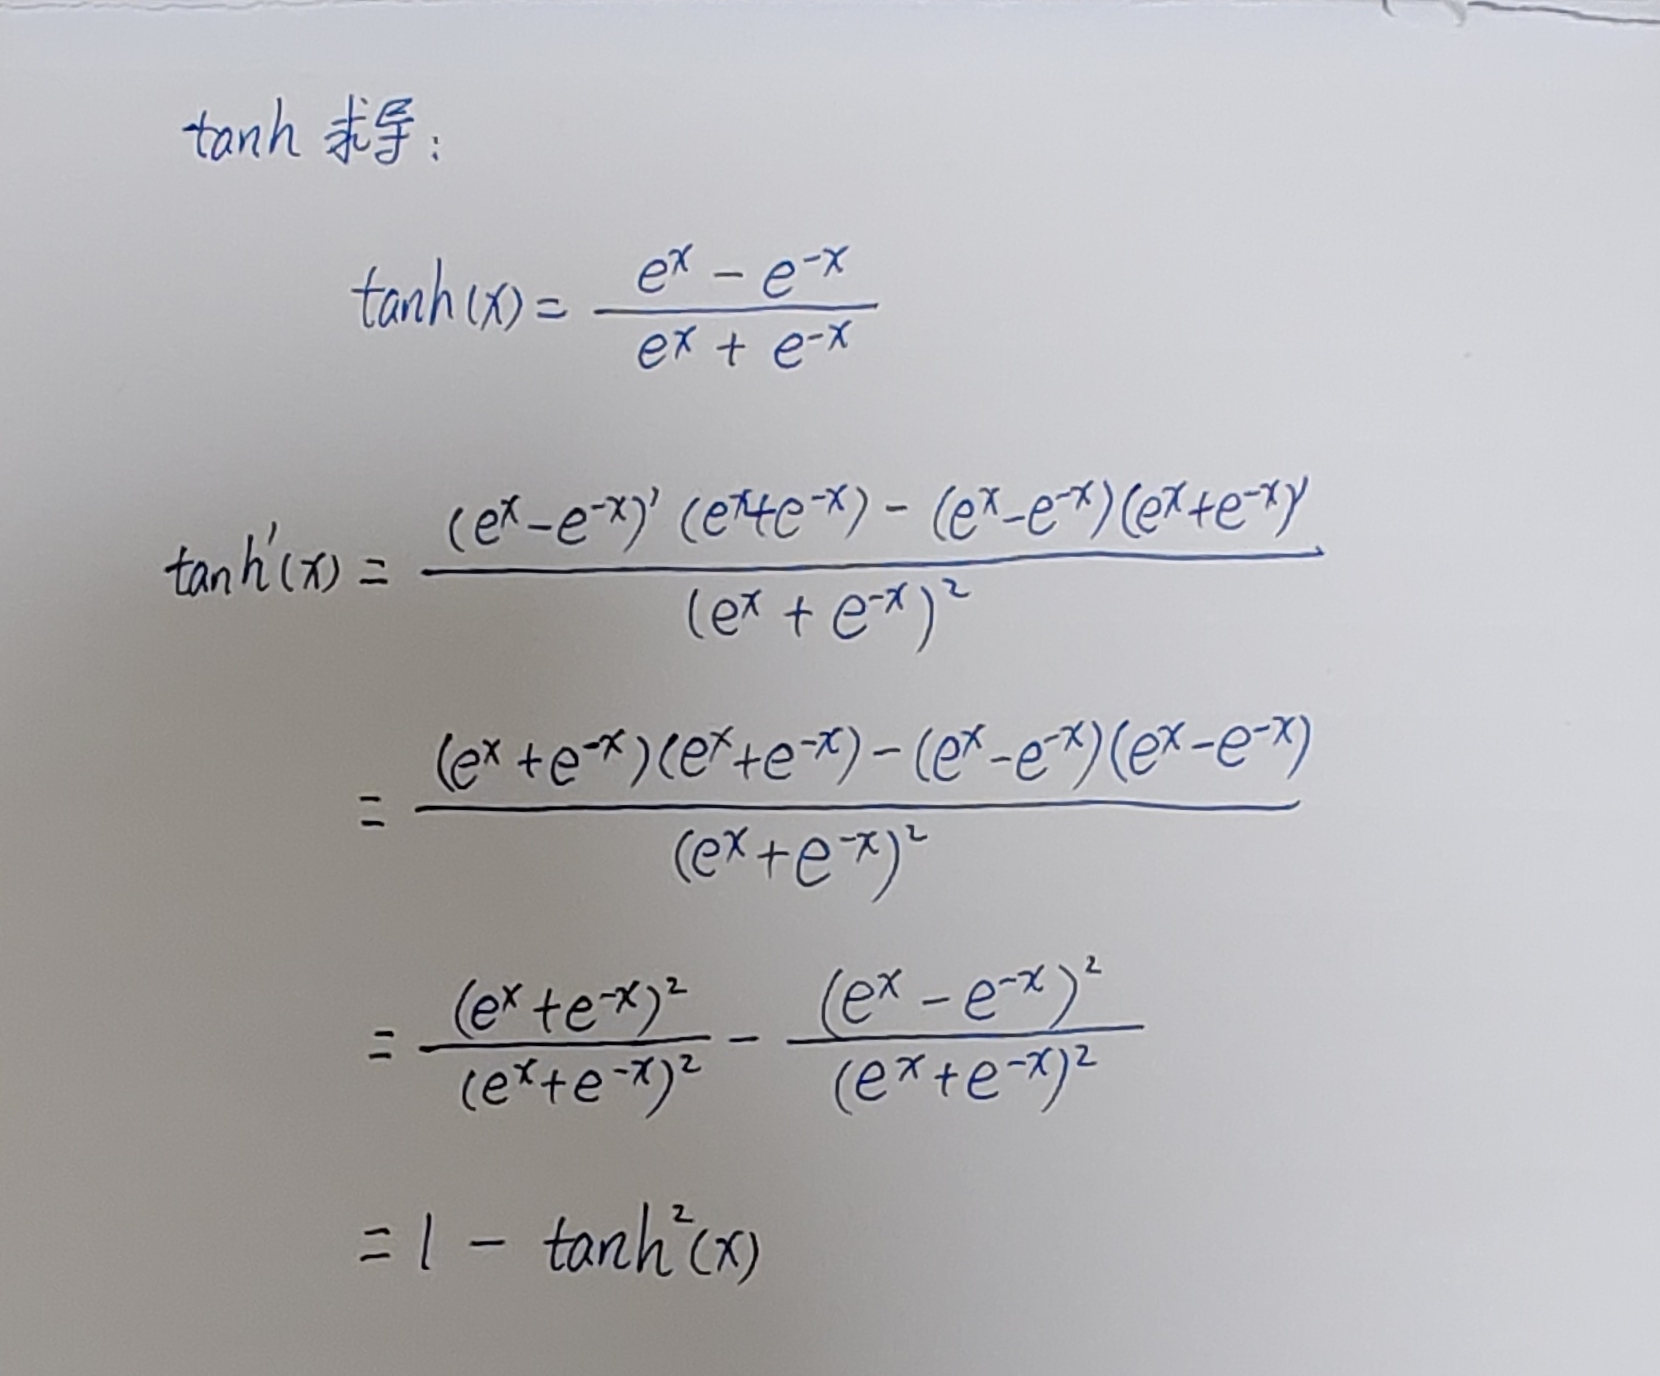 tanh 求导:
tanh(x) = \frac{e^x - e^{-x}}{e^x + e^{-x}}
tanh'(x) = \frac{(e^x - e^{-x})' (e^x + e^{-x}) - (e^x - e^{-x})(e^x + e^{-x})'}{(e^x + e^{-x})^2}
= \frac{(e^x + e^{-x})(e^x + e^{-x}) - (e^x - e^{-x})(e^x - e^{-x})}{(e^x + e^{-x})^2}
= \frac{(e^x + e^{-x})^2}{(e^x + e^{-x})^2} - \frac{(e^x - e^{-x})^2}{(e^x + e^{-x})^2}
= 1 - tanh^2(x)